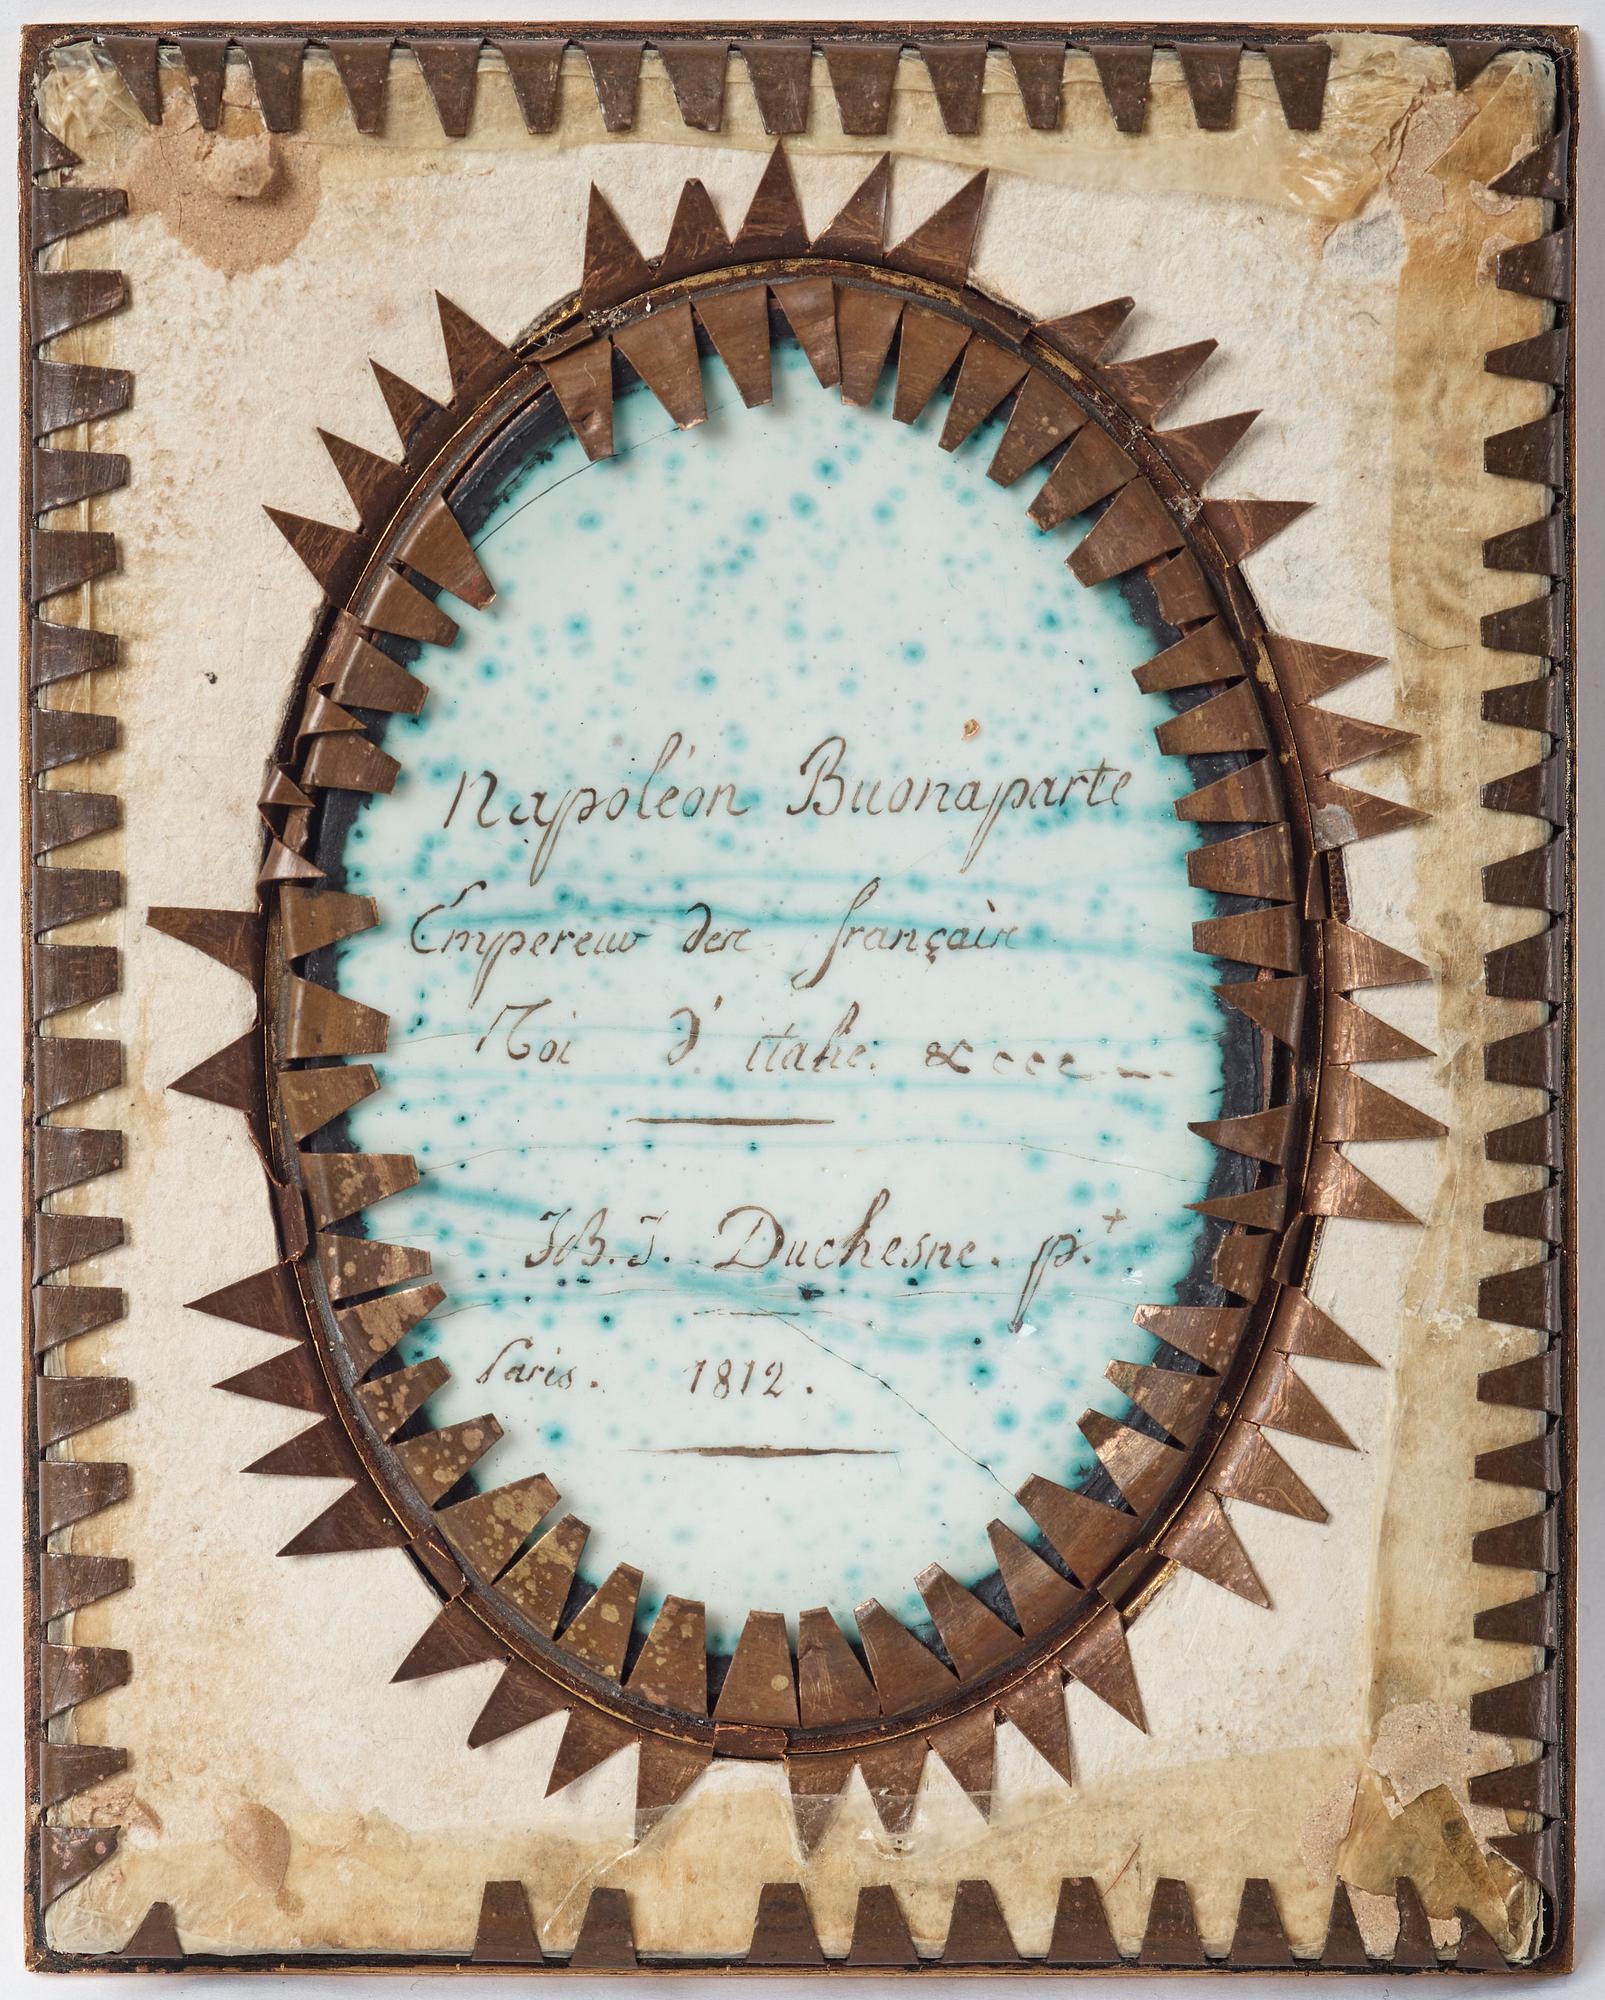 Napoléon Buonaparte
Empereur des français
Roi d'italie. &ccc...
JB. J. Duchesne. p.t
Paris. 1812.